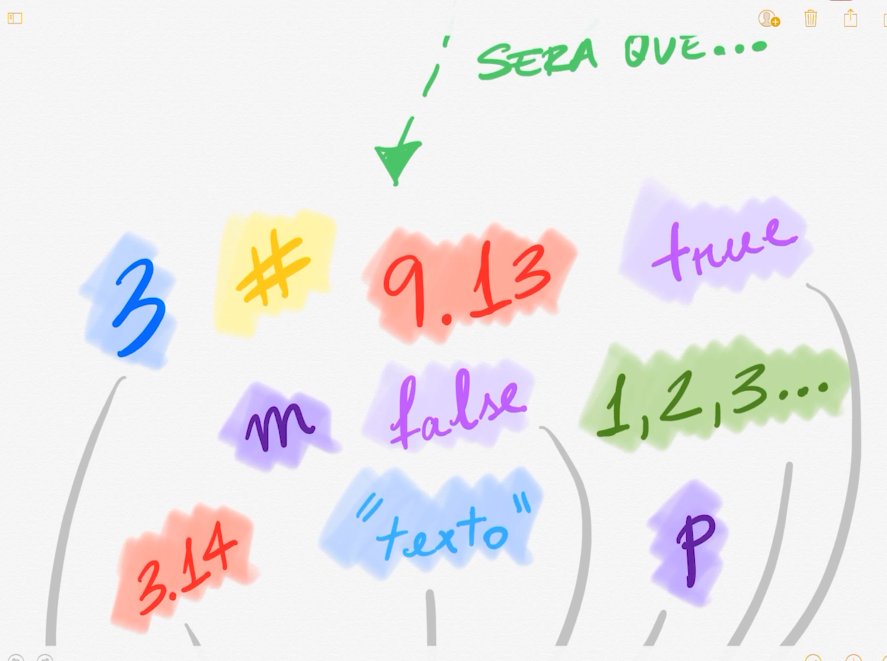 SERA QUE...
3 # 9.13 true
m false 1,2,3...
3.14 "texto" p